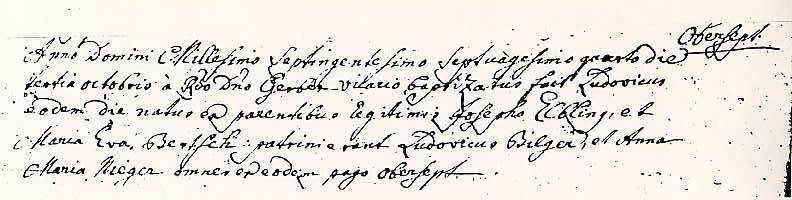 Obersept.
Anno Domini Millesimo Septingentesimo Septuagesimo quarto die
tertia octobris à Rdo Dno Gerber vicario baptizatus fuit Ludovicus
eodem die natus ex parentibus legitimis Josepho Ebling, et
Maria Eva Bertsch: patrini erant Ludovicus Bilger, et Anna
Maria Rieger omnes ex eodem pago obersept.